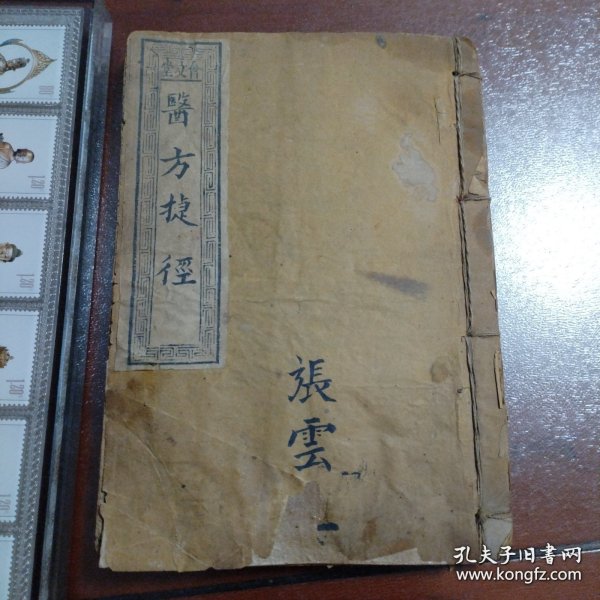 醫方捷徑
張雲
孔夫子旧書网
www.kongfz.com